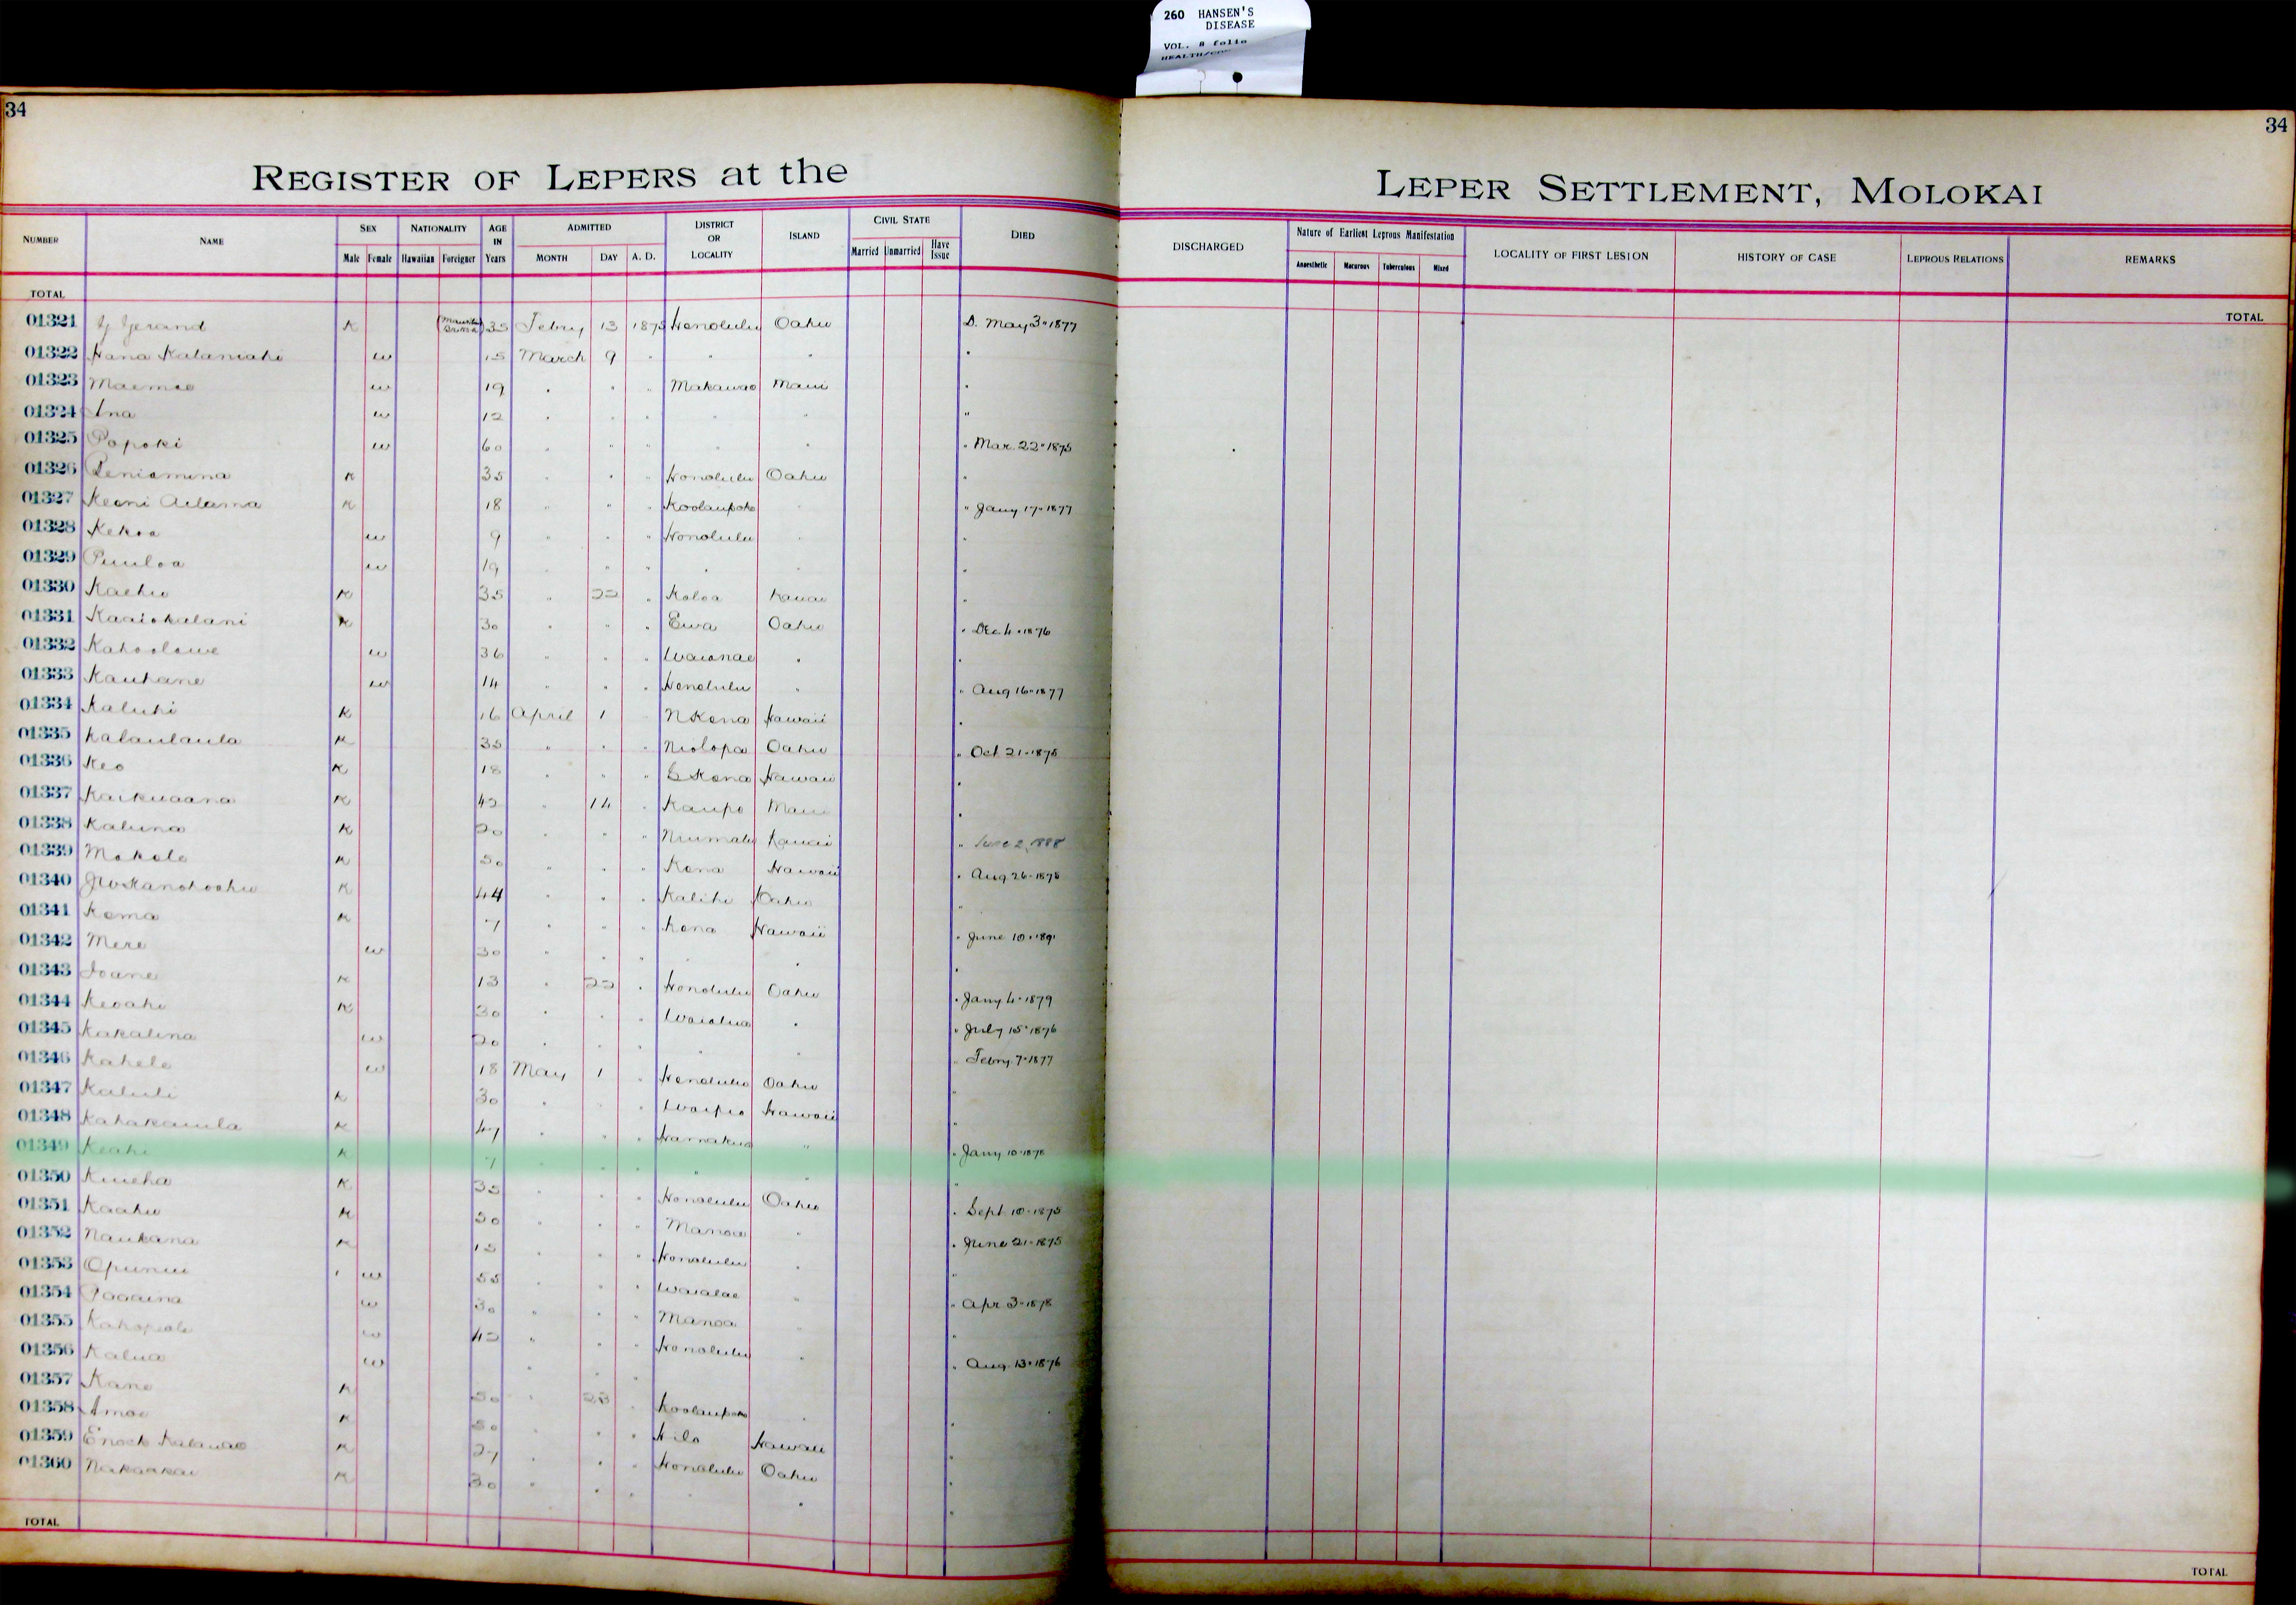 260 HANSEN'S
DISEASE
VOL. 8 folio
34
34
REGISTER OF LEPERS at the
LEPER SETTLEMENT, MOLOKAI
NUMBER NAME SEX Male Female NATIONALITY Hawaiian Foreigner AGE IN Years ADMITTED MONTH DAY A. D. DISTRICT OR LOCALITY ISLAND CIVIL STATE Married Unmarried Have Issue DIED
DISCHARGED Nature of Earliest Leprous Manifestation Anaesthetic Macurous Tuberculous Mixed LOCALITY OF FIRST LESION HISTORY OF CASE LEPROUS RELATIONS REMARKS
TOTAL
TOTAL
01321 K 35 Febry 13 1875 Honolulu Oahu D. May 3 " 1877
01322 Hana Kalaniahi w 15 March 9 " " " "
01323 Maemae w 19 " " " Makawao Maui "
01324 Ina w 12 " " " " " "
01325 Popoki w 60 " " " " " " Mar. 22 " 1875
01326 Peniamina K 35 " " " Honolulu Oahu "
01327 Keoni Adama K 18 " " " Koolaupoko " " Jany 17 " 1877
01328 Kekoa w 9 " " " Honolulu " "
01329 Puuloa w 19 " " " " " "
01330 Kaehu K 35 " 22 " Koloa Kauai "
01331 Kaaiokalani K 30 " " " Ewa Oahu " Dec 4 " 1876
01332 Kahoolawe w 36 " " " Waianae " "
01333 Kauhane w 14 " " " Honolulu " " Aug 16 " 1877
01334 Kaluhi K 16 April 1 " N Kona Hawaii "
01335 Kalaulaula K 35 " " " Niolopa Oahu " Oct 21 " 1875
01336 Keo K 18 " " " S Kona Hawaii "
01337 Kaikuaana K 42 " 14 " Kaupo Maui "
01338 Kaluna K 20 " " " Niumalu Kauai " June 2, 1888
01339 Makole K 50 " " " Kona Hawaii " Aug 26 " 1878
01340 JW Kanohoohu K 44 " " " Kalihi Oahu "
01341 Koma K 7 " " " Kona Hawaii " June 10 " 1891
01342 Mere w 30 " " " " " "
01343 Ioane K 13 " 22 " Honolulu Oahu " Jany 4 " 1879
01344 Keoahi K 30 " " " Waialua " " July 15 " 1876
01345 Kakalina w 20 " " " " " " Febry. 7 " 1877
01346 Kahele w 18 May 1 " Honolulu Oahu "
01347 Kaluli K 30 " " " Waipio Hawaii "
01348 Kahakauila K 47 " " " Hamakua " " Jany 10 " 1878
01349 Keahi K 7 " " " " " "
01350 Kuieha K 35 " " " Honolulu Oahu " Sept 10 " 1875
01351 Kaahu K 50 " " " Manoa " " June 21 " 1875
01352 Naukana K 15 " " " Honolulu " "
01353 Opunui w 55 " " " Waialae " " Apr 3 " 1878
01354 Paaaina w 30 " " " Manoa " "
01355 w 42 " " " Honolulu " " Aug. 13 " 1876
01356 Kalua w " " "
01357 Kane K 50 " 28 " Koolaupoko " "
01358 Amoe K 50 " " " Hilo Hawaii "
01359 Enoch Kalauao K 27 " " " Honolulu Oahu "
01360 Nakaakai K 30 " " " " " "
TOTAL
TOTAL